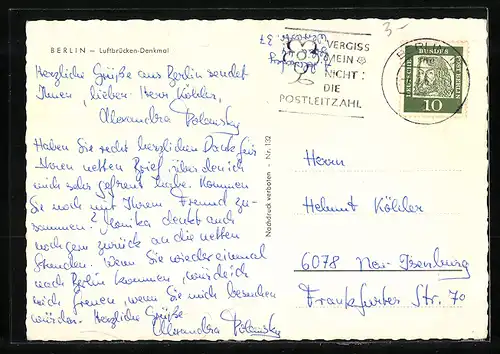 BERLIN – Luftbrücken-Denkmal
Herzliche Grüße aus Berlin sendet
Ihnen, lieber Herr Köhler,
Alexandra Polansky
Haben Sie recht herzlichen Dank für
Ihren netten Brief, über den ich
mich sehr gefreut habe. Kommen
Sie noch mit Ihrem Freund zu-
sammen? Monika denkt auch
noch gern zurück an die netten
Stunden. Wenn Sie wieder einmal
nach Berlin kommen, würde ich
mich freuen, wenn Sie mich besuchen
würden. Herzliche Grüße
Alexandra Polansky
Nachdruck verboten - Nr. 132
3.-
VERGISS
MEIN
NICHT:
DIE
POSTLEITZAHL
BERLIN
DEUTSCHE BUNDESPOST BERLIN
10
Herrn
Helmut Köhler
6078 Neu-Isenburg
Frankfurter Str. 70